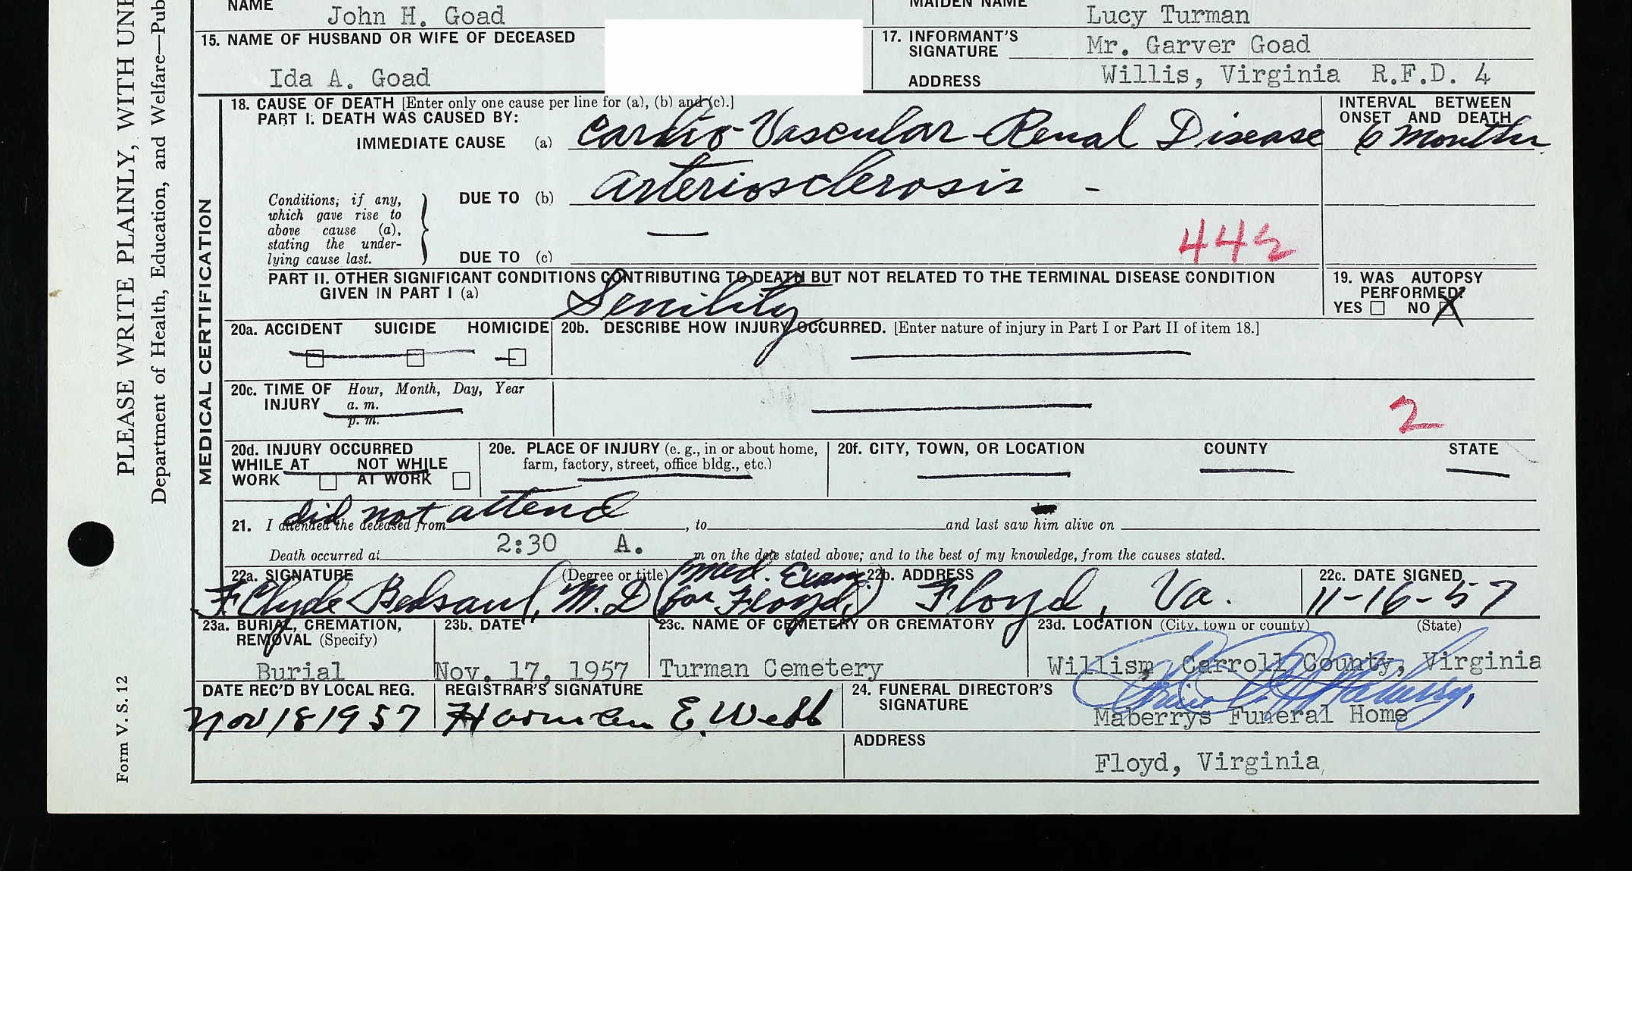 NAME
John H. Goad
MAIDEN NAME
Lucy Turman
15. NAME OF HUSBAND OR WIFE OF DECEASED
Ida A. Goad
17. INFORMANT'S SIGNATURE
Mr. Garver Goad
ADDRESS
Willis, Virginia R.F.D. 4
18. CAUSE OF DEATH [Enter only one cause per line for (a), (b) and (c).]
PART I. DEATH WAS CAUSED BY:
INTERVAL BETWEEN
ONSET AND DEATH
IMMEDIATE CAUSE (a) Cardio-Vascular-Renal Disease 6 months
Conditions, if any,
which gave rise to
above cause (a),
stating the under-
lying cause last.
DUE TO (b) Arteriosclerosis -
DUE TO (c)
442
PART II. OTHER SIGNIFICANT CONDITIONS CONTRIBUTING TO DEATH BUT NOT RELATED TO THE TERMINAL DISEASE CONDITION
GIVEN IN PART I (a)
Senility
19. WAS AUTOPSY
PERFORMED?
YES NO X
20a. ACCIDENT SUICIDE HOMICIDE
20b. DESCRIBE HOW INJURY OCCURRED. [Enter nature of injury in Part I or Part II of item 18.]
20c. TIME OF INJURY
Hour, Month, Day, Year
a. m.
p. m.
2
20d. INJURY OCCURRED
WHILE AT WORK
NOT WHILE AT WORK
20e. PLACE OF INJURY (e. g., in or about home,
farm, factory, street, office bldg., etc.)
20f. CITY, TOWN, OR LOCATION COUNTY STATE
did not attend
21. I attended the deceased from , to and last saw him alive on
Death occurred at 2:30 A. m on the date stated above; and to the best of my knowledge, from the causes stated.
22a. SIGNATURE (Degree or title)
F Clyde Bedsaul, M.D (Med. Exam. for Floyd,)
22b. ADDRESS
Floyd, Va.
22c. DATE SIGNED
11-16-57
23a. BURIAL, CREMATION,
REMOVAL (Specify)
Burial
23b. DATE
Nov. 17, 1957
23c. NAME OF CEMETERY OR CREMATORY
Turman Cemetery
23d. LOCATION (City, town or county) (State)
Willism, Carroll County, Virginia
DATE REC'D BY LOCAL REG.
Nov 18 1957
REGISTRAR'S SIGNATURE
Harman E. Webb
24. FUNERAL DIRECTOR'S
SIGNATURE
Maberrys Funeral Home
ADDRESS
Floyd, Virginia
MEDICAL CERTIFICATION
PLEASE WRITE PLAINLY, WITH
Department of Health, Education, and Welfare—
Form V. S. 12